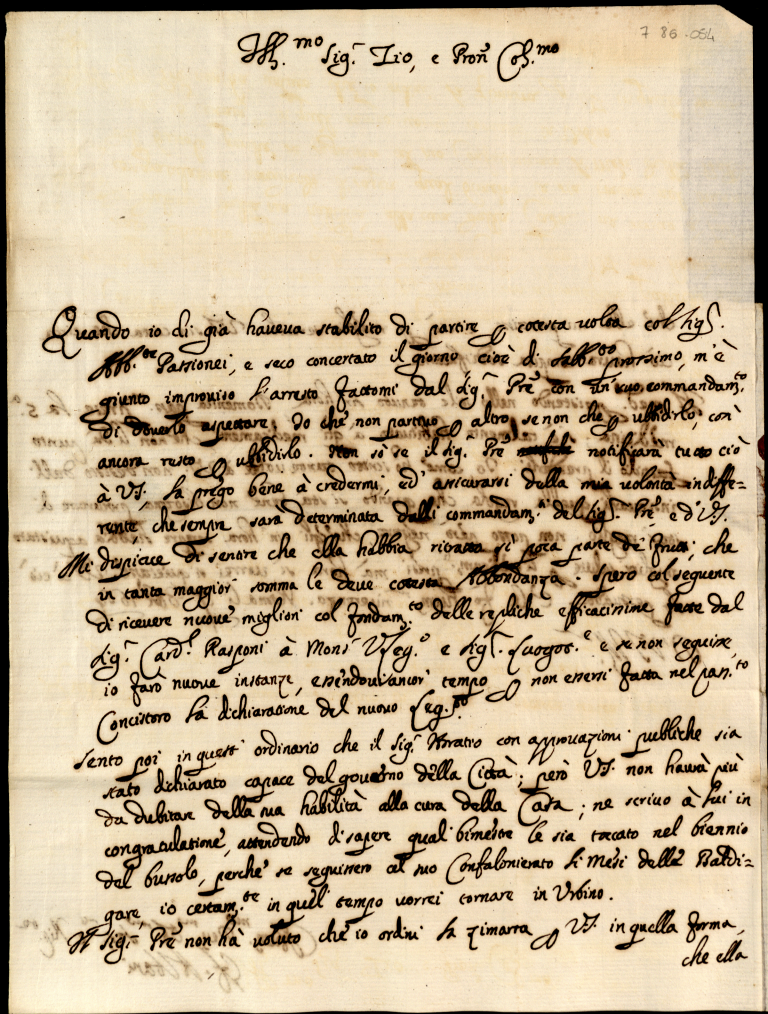 7 86-054
Ill.mo Sig.r Zio, e Pron Col.mo
Quando io di già haueua stabilito di partire p cotesta uolta col Sig.r
Abb.te Passionei, e seco concertato il giorno cioè di Sabb.to prossimo, m'è
giunto improuiso l'arresto fattomi dal Sig.r Pre con un suo commandam.to
di douerlo aspettare. Io che non partiuo p altro se non che p ubbidirlo, così
ancora resto p ubbidirlo. Non sò se il Sig.r Pre notificarà tutto ciò
à VS., la prego bene à credermi, ed' assicurarsi della mia uolontà indiffe=
rente, che sempre sarà determinata dalli commandam.ti del Sig.r Pre, e d'VS.
Mi dispiace di sentire che ella habbia ritratta sì poca parte de' frutti, che
in tanta maggior somma le deue cotesta Abbondanza. Spero col seguente
di riceuere nuoue migliori col fondam.to delle repliche efficacissime fatte dal
Sig.r Card.l Rasponi à Mons.r VLeg.o e Sig.r Luogot.e e se non seguisse,
io farò nuoue instanze, essendoui ancor' tempo p non essersi fatta nel pass.to
Concistoro la dichiaratione del nuouo Leg.to
Sento poi in quest' ordinario che il Sig.r Horatio con approuazioni publiche sia
stato dichiarato capace del gouerno della Città; però VS. non haurà più
da dubitare della sua habilità alla cura della Casa; ne scriuo à lui in
congratulatione, attendendo di sapere qual bimestre le sia toccato nel biennio
del bussolo, perche se seguissero al suo Confalonierato li Mesi delle Baldi=
gare, io certam.te in quel' tempo uorrei tornare in Vrbino.
Il Sig.r Pre non hà uoluto che io ordini la zimarra p VS. in quella forma,
che ella